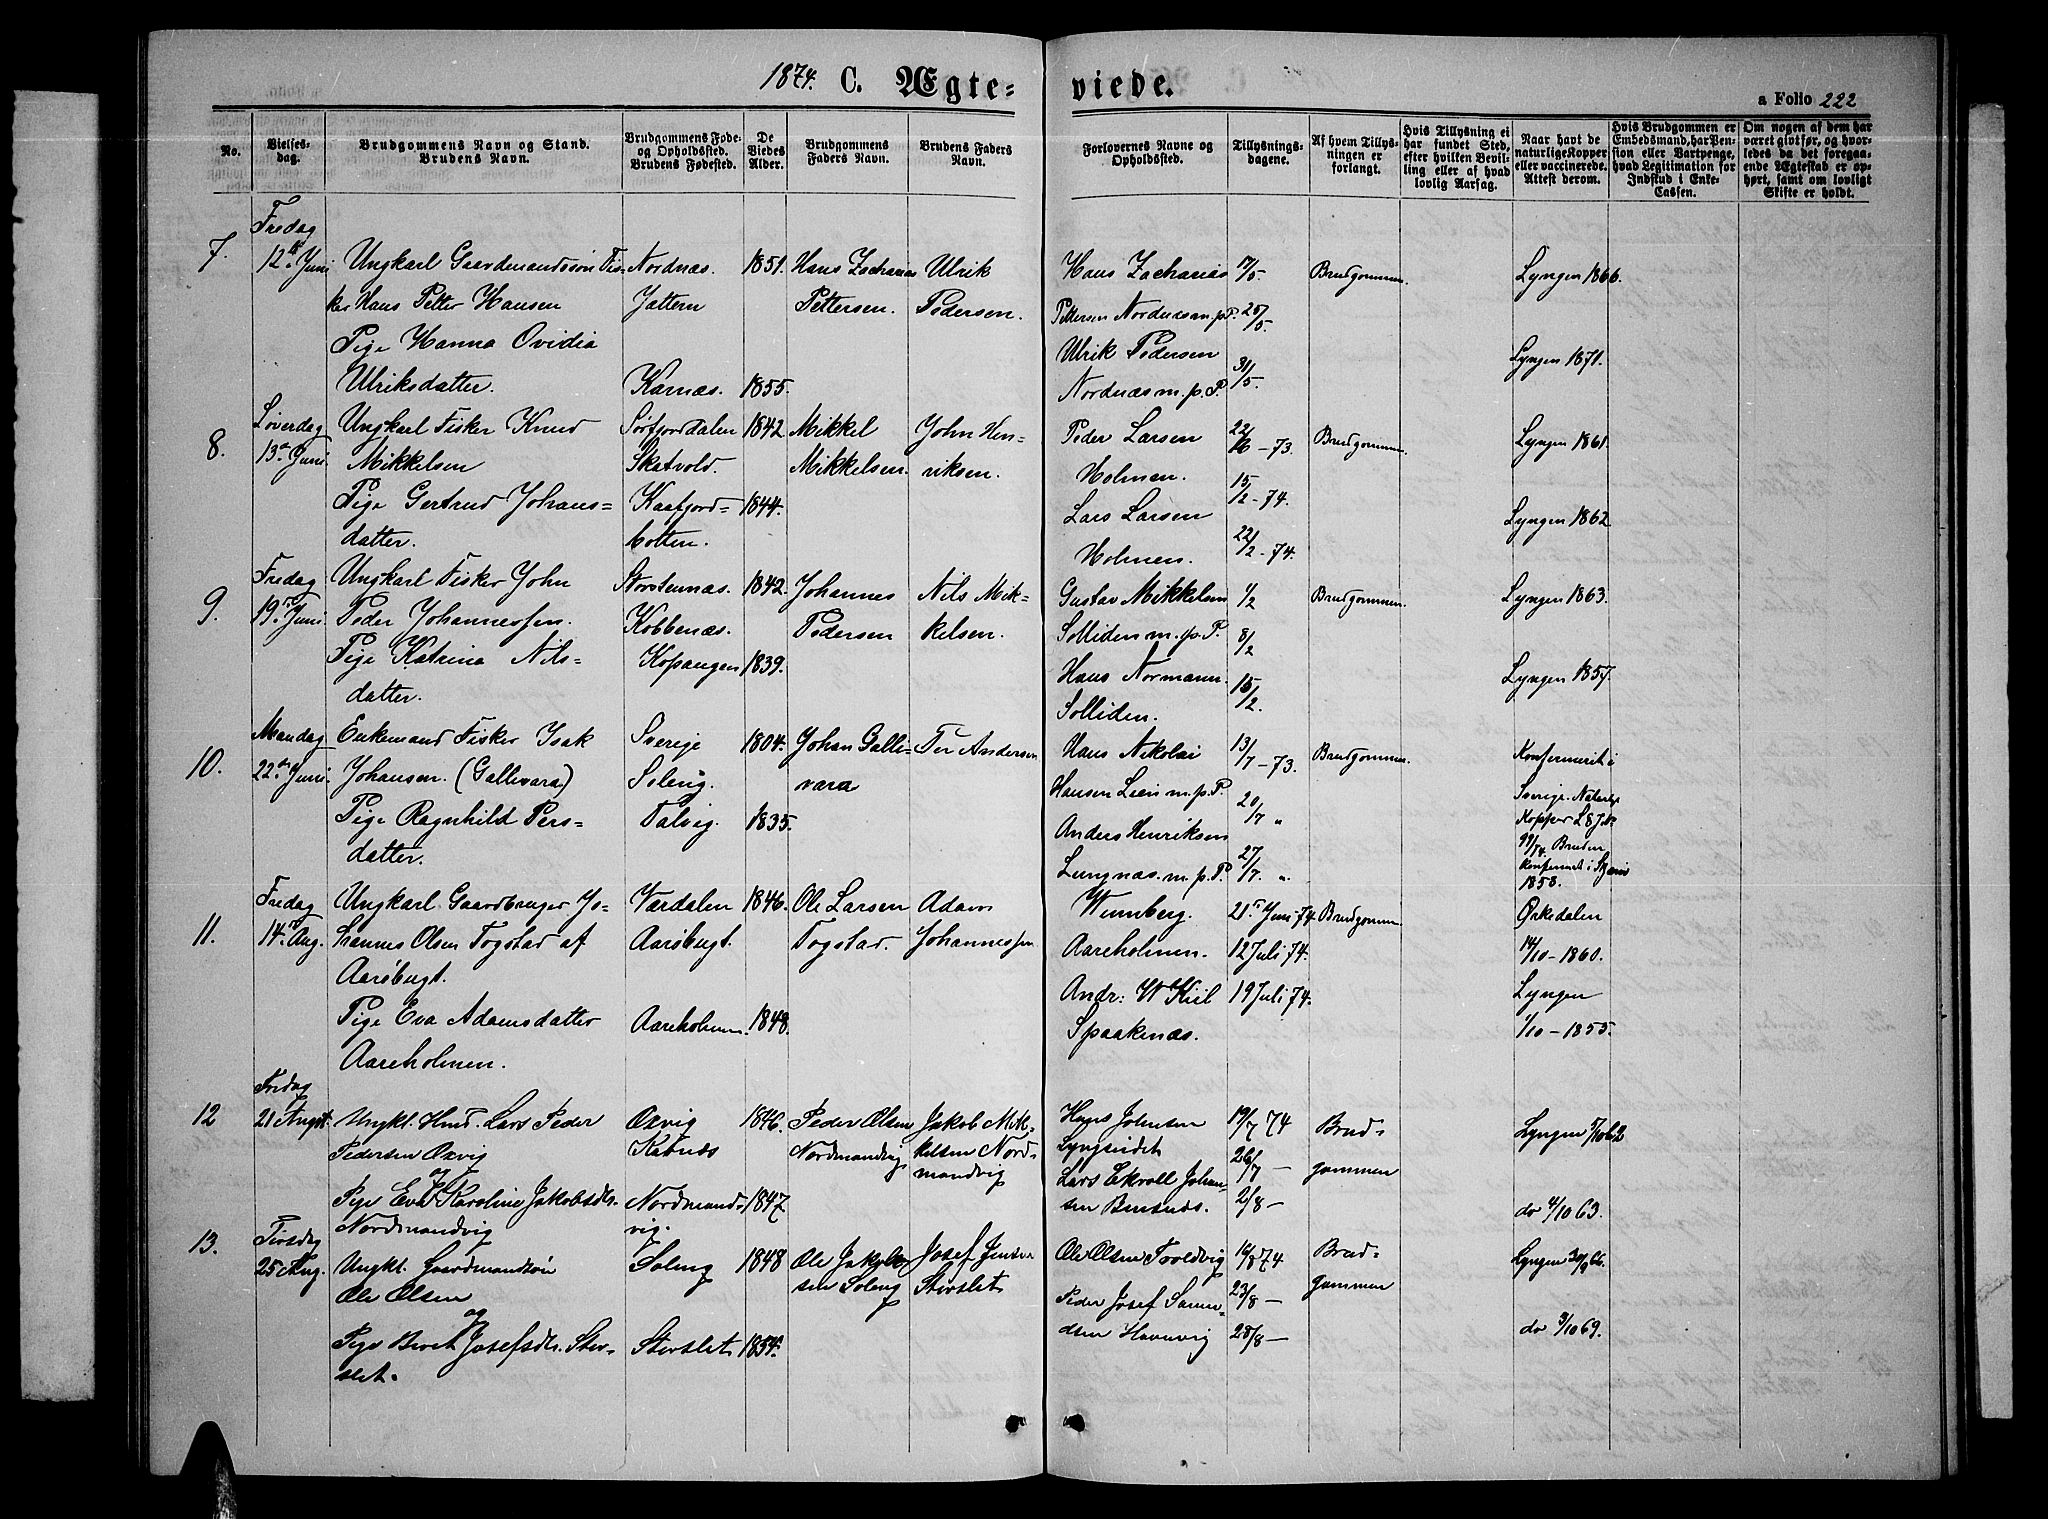 1874. C. Ægte=
viede.
a Folio 222
No.
Vielses-
dag.
Brudgommens Navn og Stand.
Brudens Navn.
Brudgommens Føde-
og Opholdssted.
Brudens Fødested.
De
Viedes
Alder.
Brudgommens
Faders Navn.
Brudens Faders
Navn.
Forlovernes Navne og
Opholdssted.
Tillysnings-
dagene.
Af hvem Tillys-
ningen er
forlangt.
Hvis Tillysning ei
har fundet Sted,
efter hvilken Bevil-
ling eller af hvad
lovlig Aarsag.
Naar havt de
naturlige Kopper
eller vaccinerede.
Attest derom.
Hvis Brudgommen er
Embedsmand, har Pen-
sion eller Vartpenge,
hvad Legitimation for
Indskud i Enke-
Cassen.
Om nogen af dem har
været givt før, og hvor-
ledes da det foregaa-
ende Ægteskab er op-
hørt, samt om lovligt
Skifte er holdt.
7.
Fredag
12te Juni
Ungkarl Gaardmandssøn Fis-
ker Hans Petter Hansen
Pige Hanna Ovidia
Ulriksdatter.
Nordnæs.
Jattern
Karnæs.
1851.
1855.
Hans Zacharias
Pettersen.
Ulrik
Pedersen.
Hans Zacharias
Pettersen Nordnæs m.p.P.
Ulrik Pedersen
Nordnæs m.p.P.
17/5
25/5.
31/5.
Brudgommen.
Lyngen 1866.
Lyngen 1871.
8.
Løverdag
13de Juni
Ungkarl Fisker Knud
Mikkelsen
Pige Gertrud Johans=
datter.
Sørfjorddalen
Skatvold.
Kaafjord=
botten.
1842
1844.
Mikkel
Mikkelsen.
John Hen-
riksen.
Peder Larsen
Holmen.
Lars Larsen
Holmen.
22/16 - 73.
15/2 - 74.
22/2 - 74.
Brudgommen.
Lyngen 1861.
Lyngen 1862
9.
Fredag
19de Juni
Ungkarl Fisker John
Peder Johannessen.
Pige Katrina Nils=
datter.
Storstennæs.
Kobbenæs.
Kopangen
1842.
1839.
Johannes
Pedersen
Nils Mik=
kelsen.
Gustav Mikkelsen
Solliden m.p.P.
Hans Normann.
Solliden.
1/2
8/2
15/2.
Brudgommen.
Lyngen 1863.
Lyngen 1857.
10.
Mandag
22de Juni.
Enkemand Fisker Isak
Johansen. (Gallivara)
Pige Ragnhild Pers=
datter.
Sverige
Soleng.
Talvig.
1804.
1835.
Johan Galli-
vara
Per Andersen
Hans Nikolai
Hansen Lein m.p.P.
Anders Henriksen
Lungnæs m.p.P.
13/7 - 73.
20/7 "
27/7. "
Brudgommen.
Konfirmerit i
Sverige. Naturlige
Kopper L 8 J No
99/74. Bruden
konfirmert i Skjervø
1853.
11.
Fredag
14de Aug.
Ungkarl Gaardbruger Jo-
hannes Olsen Togstad af
Aarøbugt.
Pige Eva Adamsdatter
Aareholmen.
Værdalen
Aarøbugt.
Aareholmen.
1846.
1848.
Ole Larsen
Togstad.
Adam
Johannessen
Wennberg.
Aareholmen.
Andr: W Kiil
Spaakenæs.
21de Juni 74.
12 Juli 74.
19 Juli 74.
Brudgommen
Ørkedalen
14/10 - 1860.
Lyngen
1/10 - 1855.
12
Fredag
21 August.
Ungkl. Hmd. Lars Peder
Pedersen Oxvig
og
Pige Eva Karoline Jakobsdtr.
Nordmandvig
Oxvig
Katnæs
Nordmand=
vig.
1846.
1847
Peder Olsen
Nordmandvig
Jakob Mik=
kelsen Nord=
mandvig
Hans Johnsen
Lyngseidet
Lars Ekroll Johan=
sen Bensnæs.
19/7 74
26/7 —
2/8 —
Brud=
gommen
Lyngen 5/10 62
do 4/10 63.
13.
Tirsdag
25 Aug.
Ungkl. Gaardmandsøn
Ole Olsen
og
Pige Beret Josefsdtr. Stor=
slet.
Soleng
Storslet
1848
1854.
Ole Jakob-
sen Soleng
Josef Jensen
Storslet
Ole Olsen Troldvig
Peder Josef Samu=
elsen Havnvig
16/8 74
23/8 —
25/8 —
Brud=
gommen
Lyngen 30/9 66.
do 3/10 69.